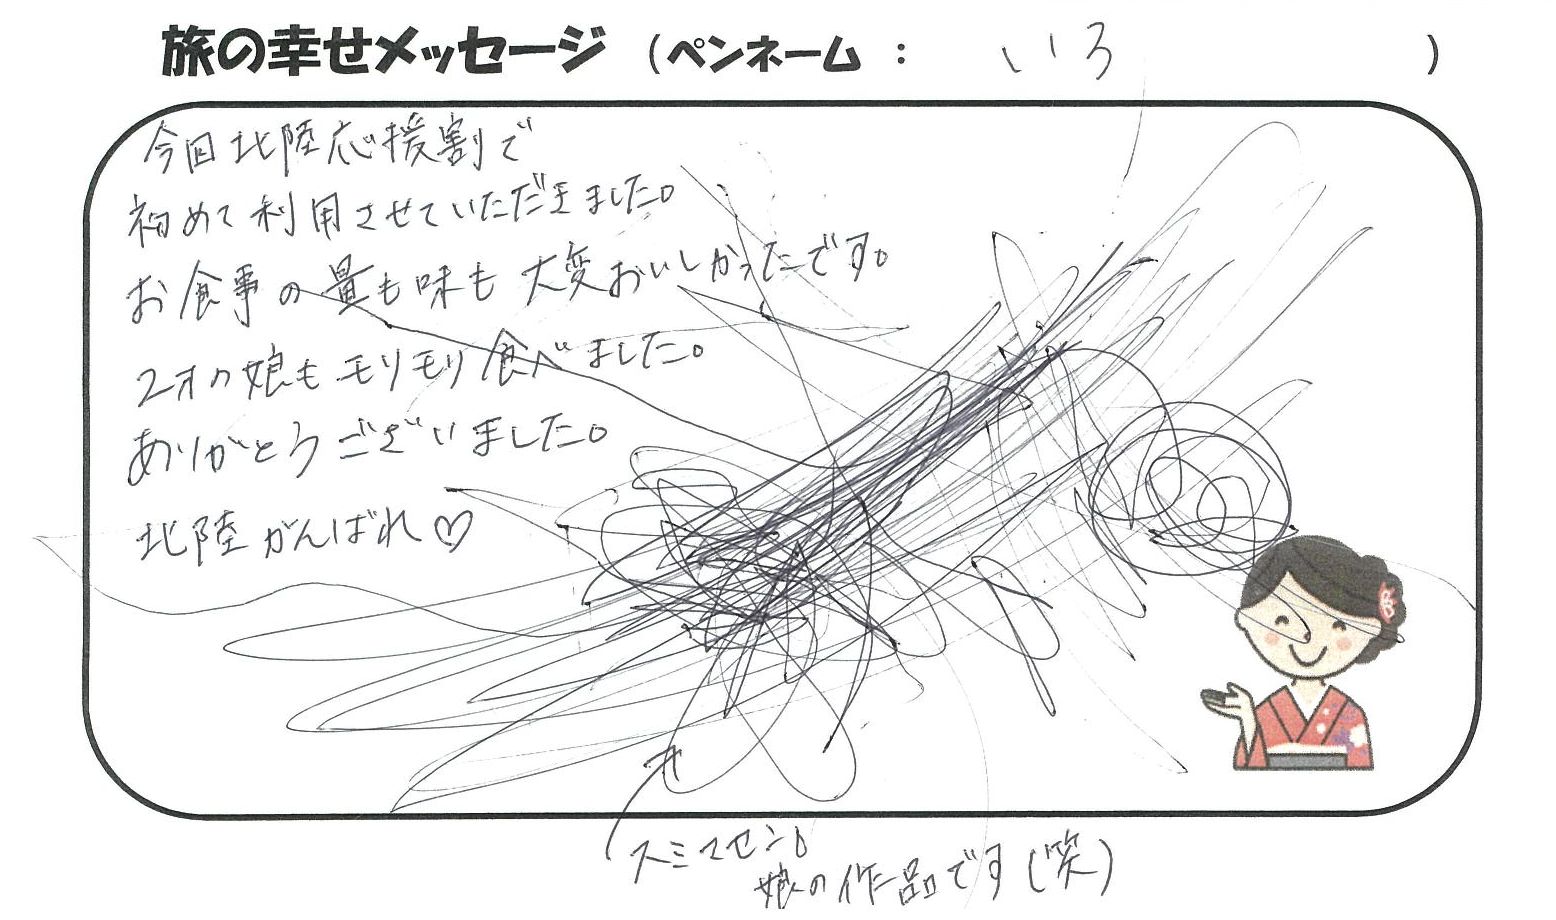 旅の幸せメッセージ (ペンネーム : いろ )
今回北陸応援割で
初めて利用させていただきました。
お食事の量も味も大変おいしかったです。
2才の娘もモリモリ食べました。
ありがとうございました。
北陸がんばれ♡
スミマセン。
娘の作品です(笑)